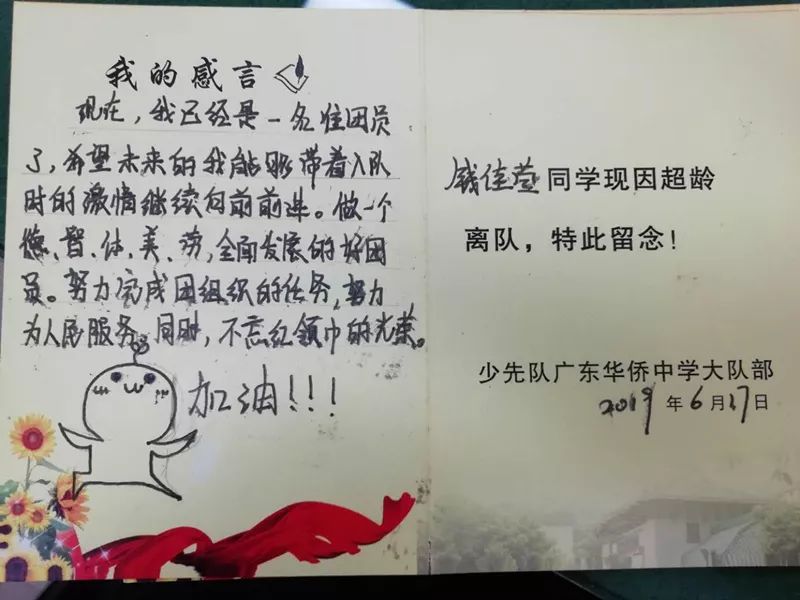 我的感言
现在，我已经是一名准团员
了，希望未来的我能够带着入队
时的激情继续向前前进。做一个
德、智、体、美、劳，全面发展的好团
员。努力完成团组织的任务，努力
为人民服务。同时，不忘红领巾的光荣。
加油！！！
钱佳莹同学现因超龄
离队，特此留念！
少先队广东华侨中学大队部
2019年6月17日